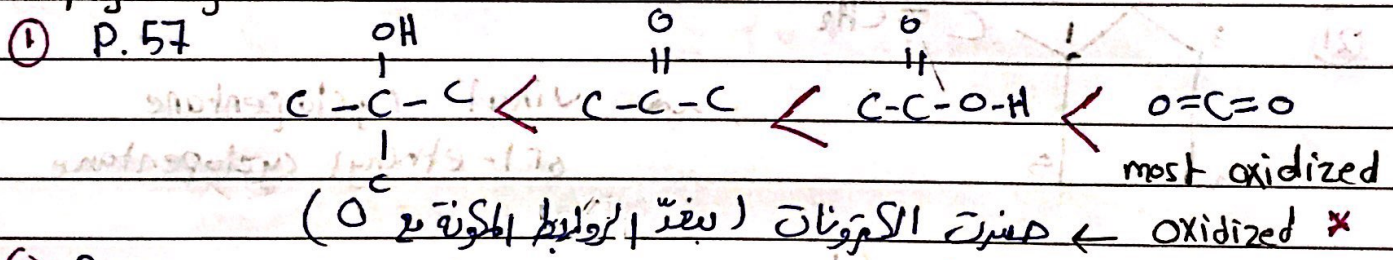 ① P. 57
OH O O
| || ||
C-C-C < C-C-C < C-C-O-H < O=C=O
|
C
most oxidized
* oxidized ← خسرت الكترونات (بنعدّ الروابط المكونة مع O)